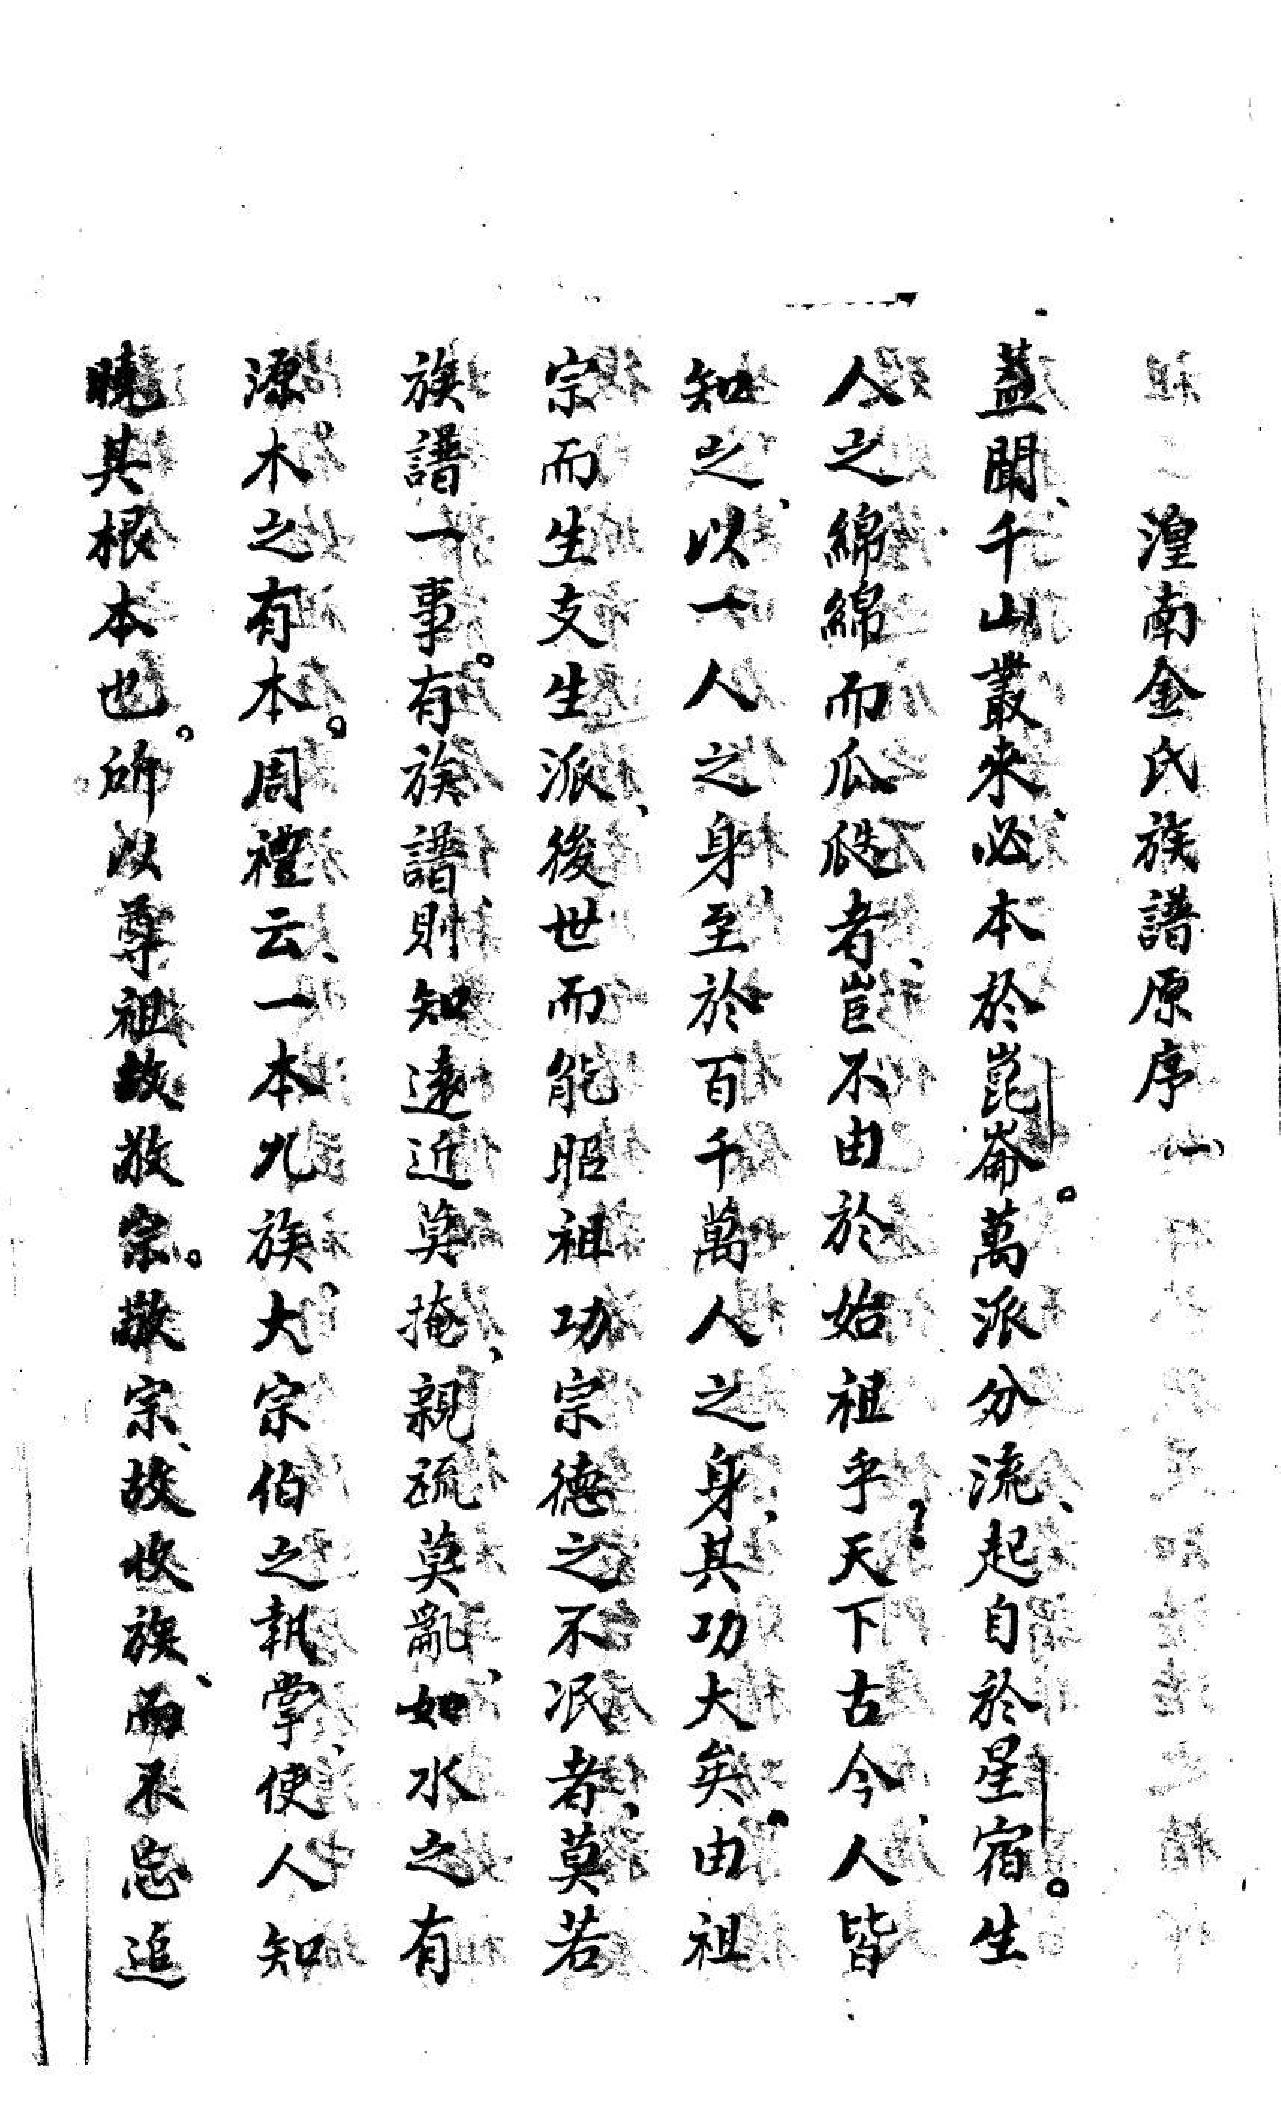 湟南金氏族譜原序一
蓋聞、千山叢來、必本於崑崙。萬派分流、起自於星宿。生
人之綿綿而瓜瓞者、豈不由於始祖乎？天下古今、人皆
知之、以一人之身、至於百千萬人之身、其功大矣。由祖
宗而生支生派、後世而能昭祖功宗德之不泯者、莫若
族譜一事。有族譜、則知遠近莫掩、親疏莫亂、如水之有
源。木之有本。周禮云、一本九族。大宗伯之執掌、使人知
曉其根本也。所以尊祖故敬宗。敬宗、故收族、而不忘追